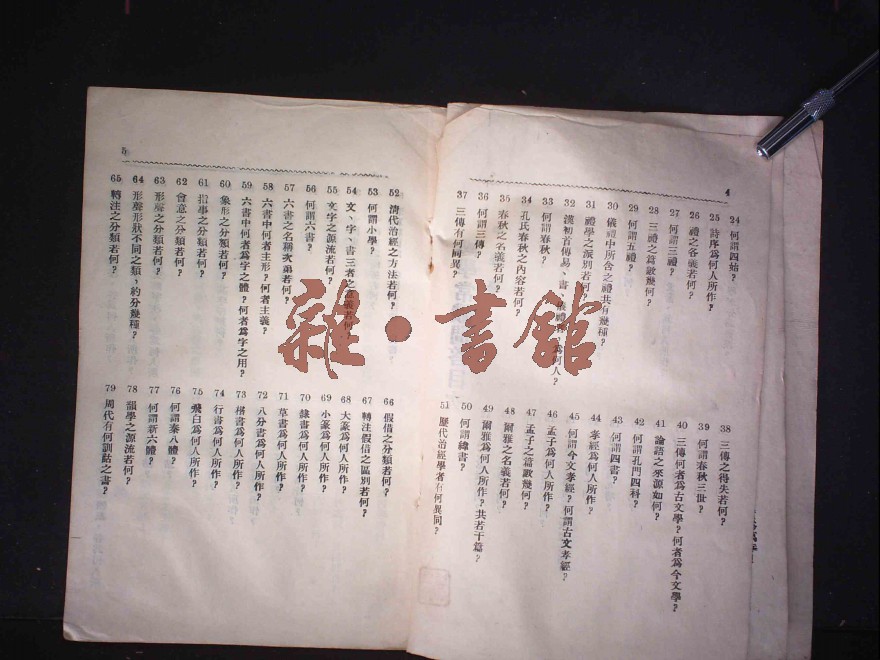 4
24 何謂四始?
25 詩序為何人所作?
26 禮之各義若何?
27 何謂三禮?
28 三禮之篇數幾何?
29 何謂五禮?
30 儀禮中所含之禮共有幾種?
31 禮學之派別若何?
32 漢初首傳易、書、禮 為何人?
33 何謂春秋?
34 孔氏春秋之內容若何?
35 春秋之名義若何?
36 何謂三傳?
37 三傳有何同異?
38 三傳之得失若何?
39 何謂春秋三世?
40 三傳何者爲古文學?何者爲今文學?
41 論語之來源如何?
42 何謂孔門四科?
43 何謂四書?
44 孝經爲何人所作?
45 何謂今文孝經?何謂古文孝經?
46 孟子爲何人所作?
47 孟子之篇數幾何?
48 爾雅之名義若何?
49 爾雅爲何人所作?共若干篇?
50 何謂緯書?
51 歷代治經學者有何異同?
5
52 清代治經之方法若何?
53 何謂小學?
54 文、字、書三者之 義若何?
55 文字之源流若何?
56 何謂六書?
57 六書之名稱次第若何?
58 六書中何者主形?何者主義?
59 六書中何者爲字之體?何者爲字之用?
60 象形之分類若何?
61 指事之分類若何?
62 會意之分類若何?
63 形聲之分類若何?
64 形聲形狀不同之類、約分幾種?
65 轉注之分類若何?
66 假借之分類若何?
67 轉注假借之區別若何?
68 大篆爲何人所作?
69 小篆爲何人所作?
70 隸書爲何人所作?
71 草書爲何人所作?
72 八分書爲何人所作?
73 楷書爲何人所作?
74 行書爲何人所作?
75 飛白爲何人所作?
76 何謂秦八體?
77 何謂新六體?
78 韻學之源流若何?
79 周代有何訓詁之書?
雜·書館